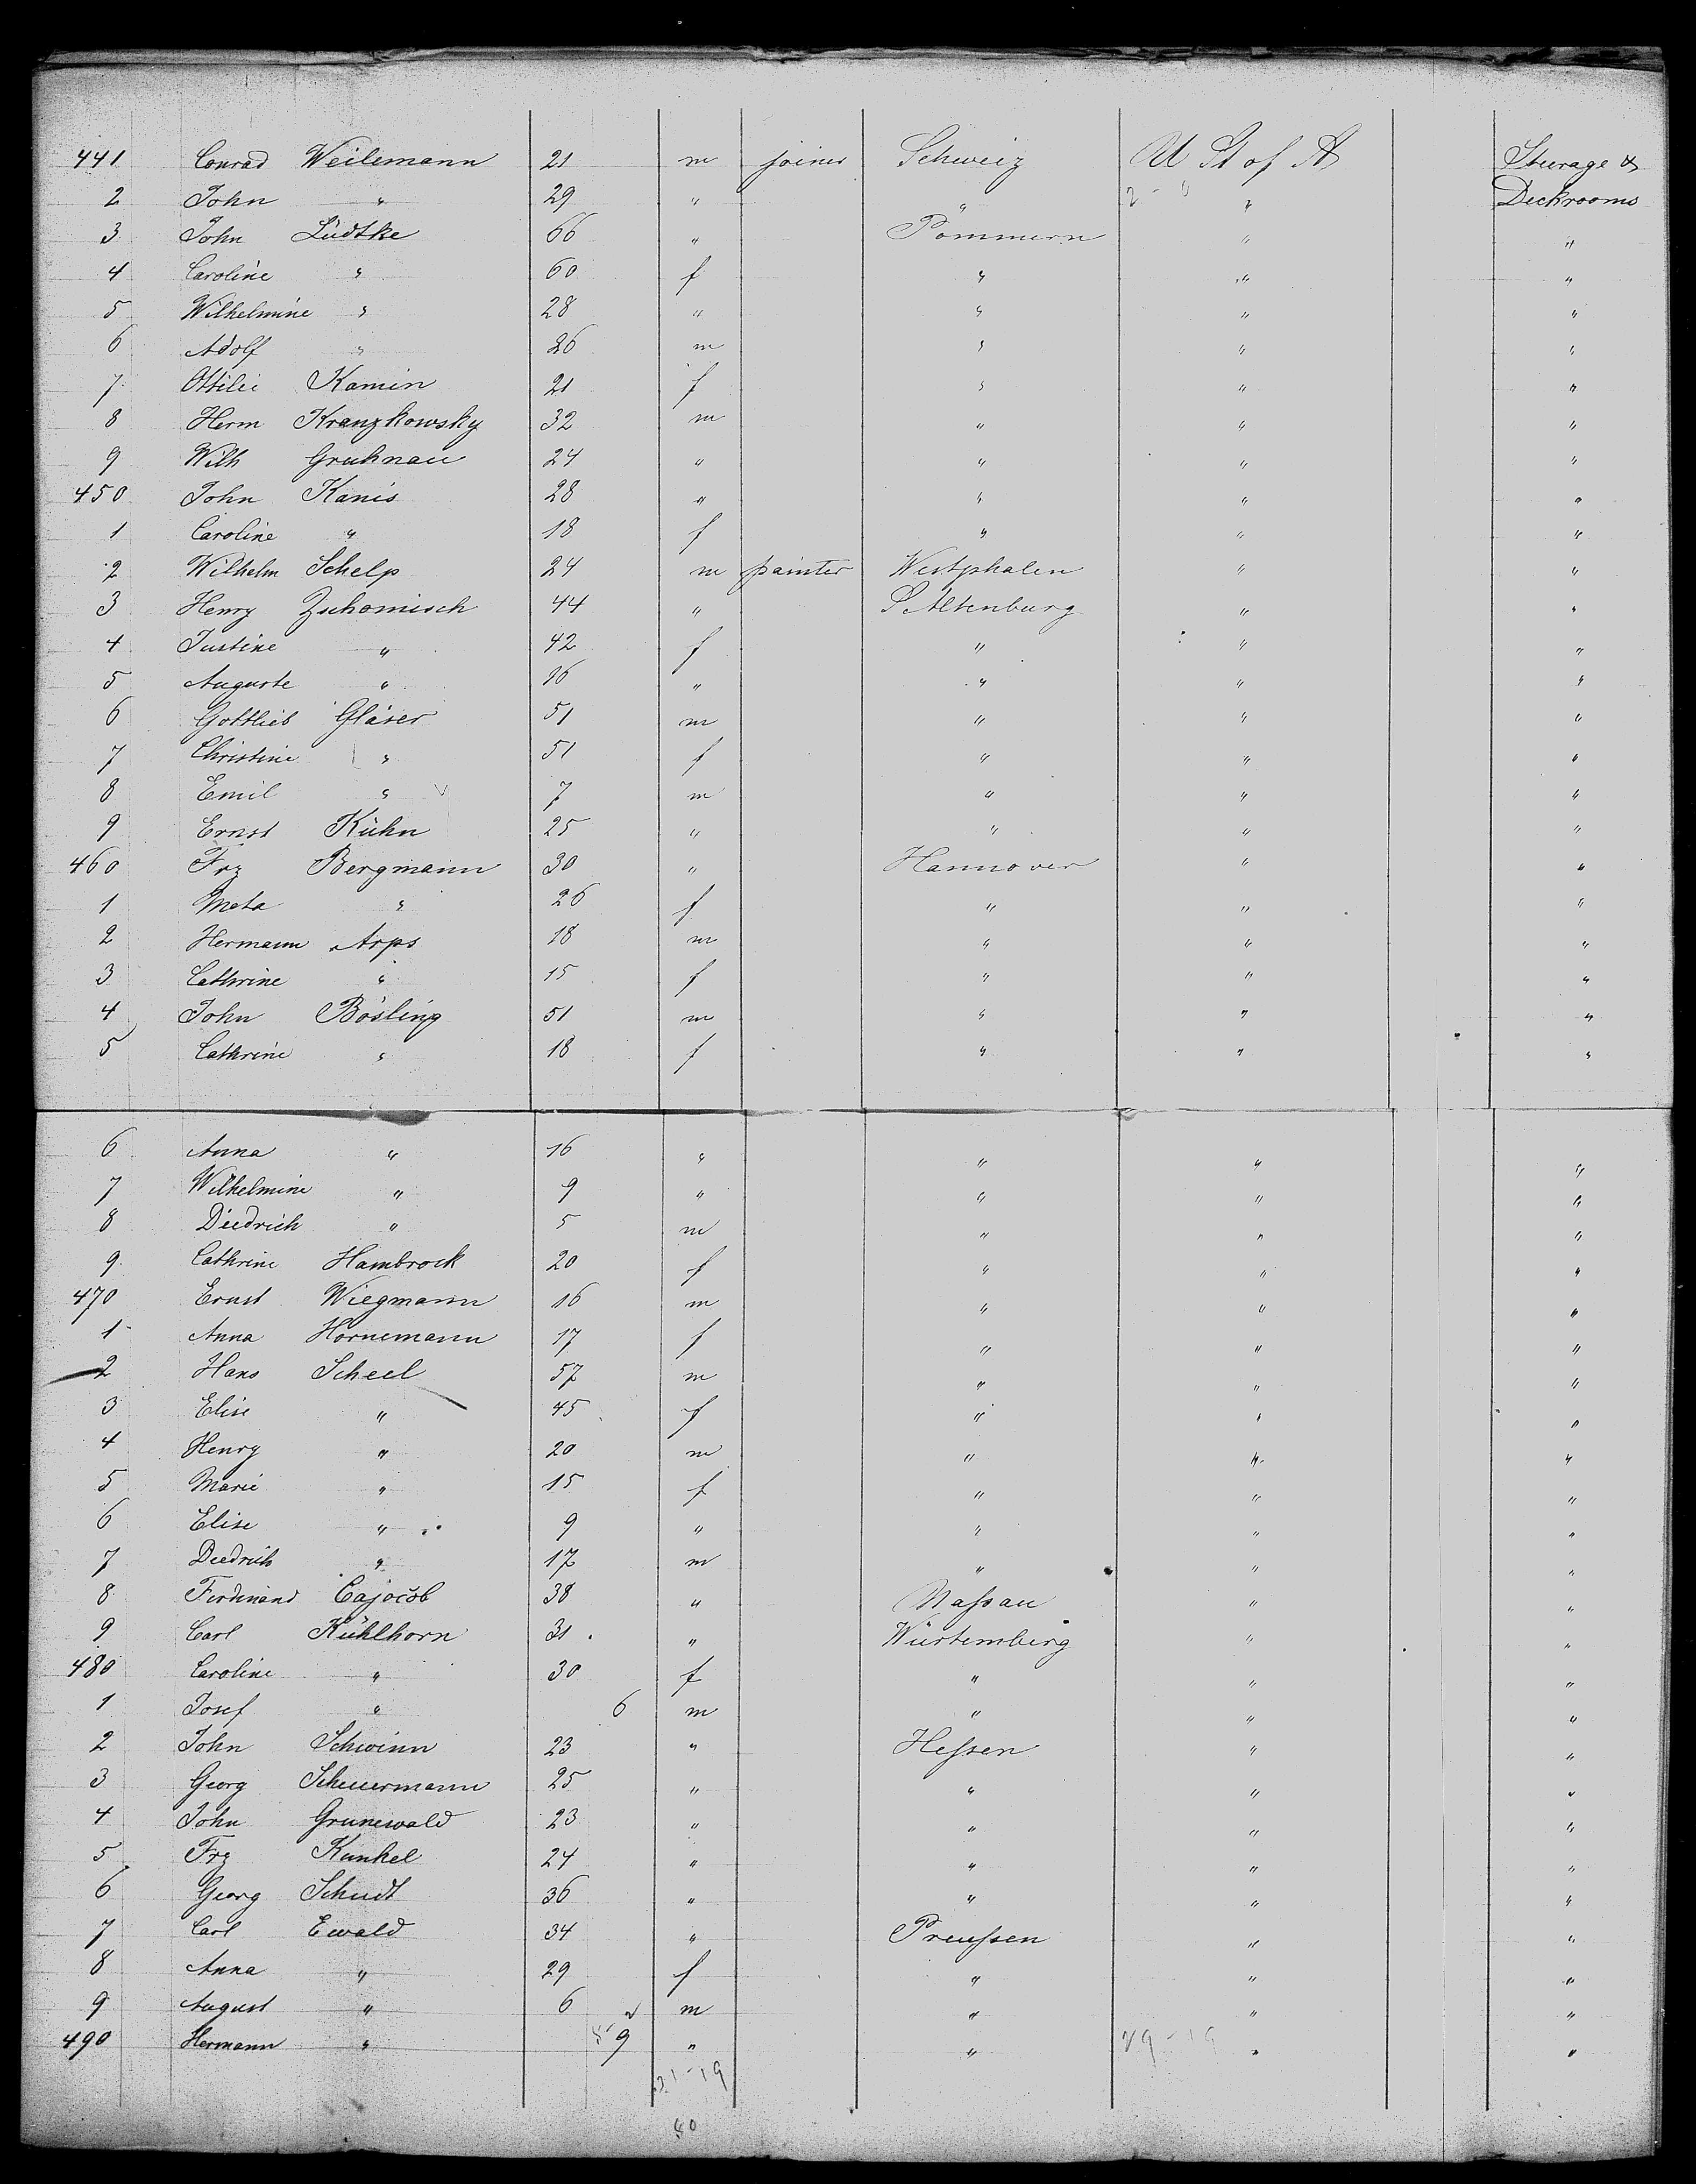 441 Conrad Weilemann 21 m joiner Schweiz U St of A Steerage &
2 John " 29 " " " Deckrooms
3 John Lüdtke 66 " Pommern " "
4 Caroline " 60 f " " "
5 Wilhelmine " 28 " " " "
6 Adolf " 26 m " " "
7 Ottilie Kamin 21 f " " "
8 Herm Kranzkowsky 32 m " " "
9 Wilh Gruhnau 24 " " " "
450 John Kanis 28 " " " "
1 Caroline " 18 f " " "
2 Wilhelm Schelp 24 m painter Westphalen " "
3 Henry Zschomisch 44 " S Altenburg " "
4 Justine " 42 f " " "
5 Auguste " 16 " " " "
6 Gottlieb Gläser 51 m " " "
7 Christine " 51 f " " "
8 Emil " 7 m " " "
9 Ernst Kühn 25 " " " "
460 Frz Bergmann 30 " Hannover " "
1 Meta " 26 f " " "
2 Hermann Arps 18 m " " "
3 Cathrine " 15 f " " "
4 John Bösling 51 m " " "
5 Cathrine " 18 f " " "
6 Anna " 16 " " " "
7 Wilhelmine " 9 " " " "
8 Diedrich " 5 m " " "
9 Cathrine Hambrock 20 f " " "
470 Ernst Wiegmann 16 m " " "
1 Anna Hornemann 17 f " " "
2 Hans Scheel 57 m " " "
3 Elise " 45 f " " "
4 Henry " 20 m " " "
5 Marie " 15 f " " "
6 Elise " 9 " " " "
7 Diedrich " 17 m " " "
8 Ferdinand Cajocob 38 " Nassau " "
9 Carl Kühlhorn 31 " Würtemberg " "
480 Caroline " 30 f " " "
1 Josef " 6 m " " "
2 John Schwinn 23 " Hessen " "
3 Georg Scheuermann 25 " " " "
4 John Grunewald 23 " " " "
5 Frz Kunkel 24 " " " "
6 Georg Schudt 36 " " " "
7 Carl Ewald 34 " Preussen " "
8 Anna " 29 f " " "
9 August " 6 m " " "
490 Hermann " 9 " " 29-19 " "
31-19